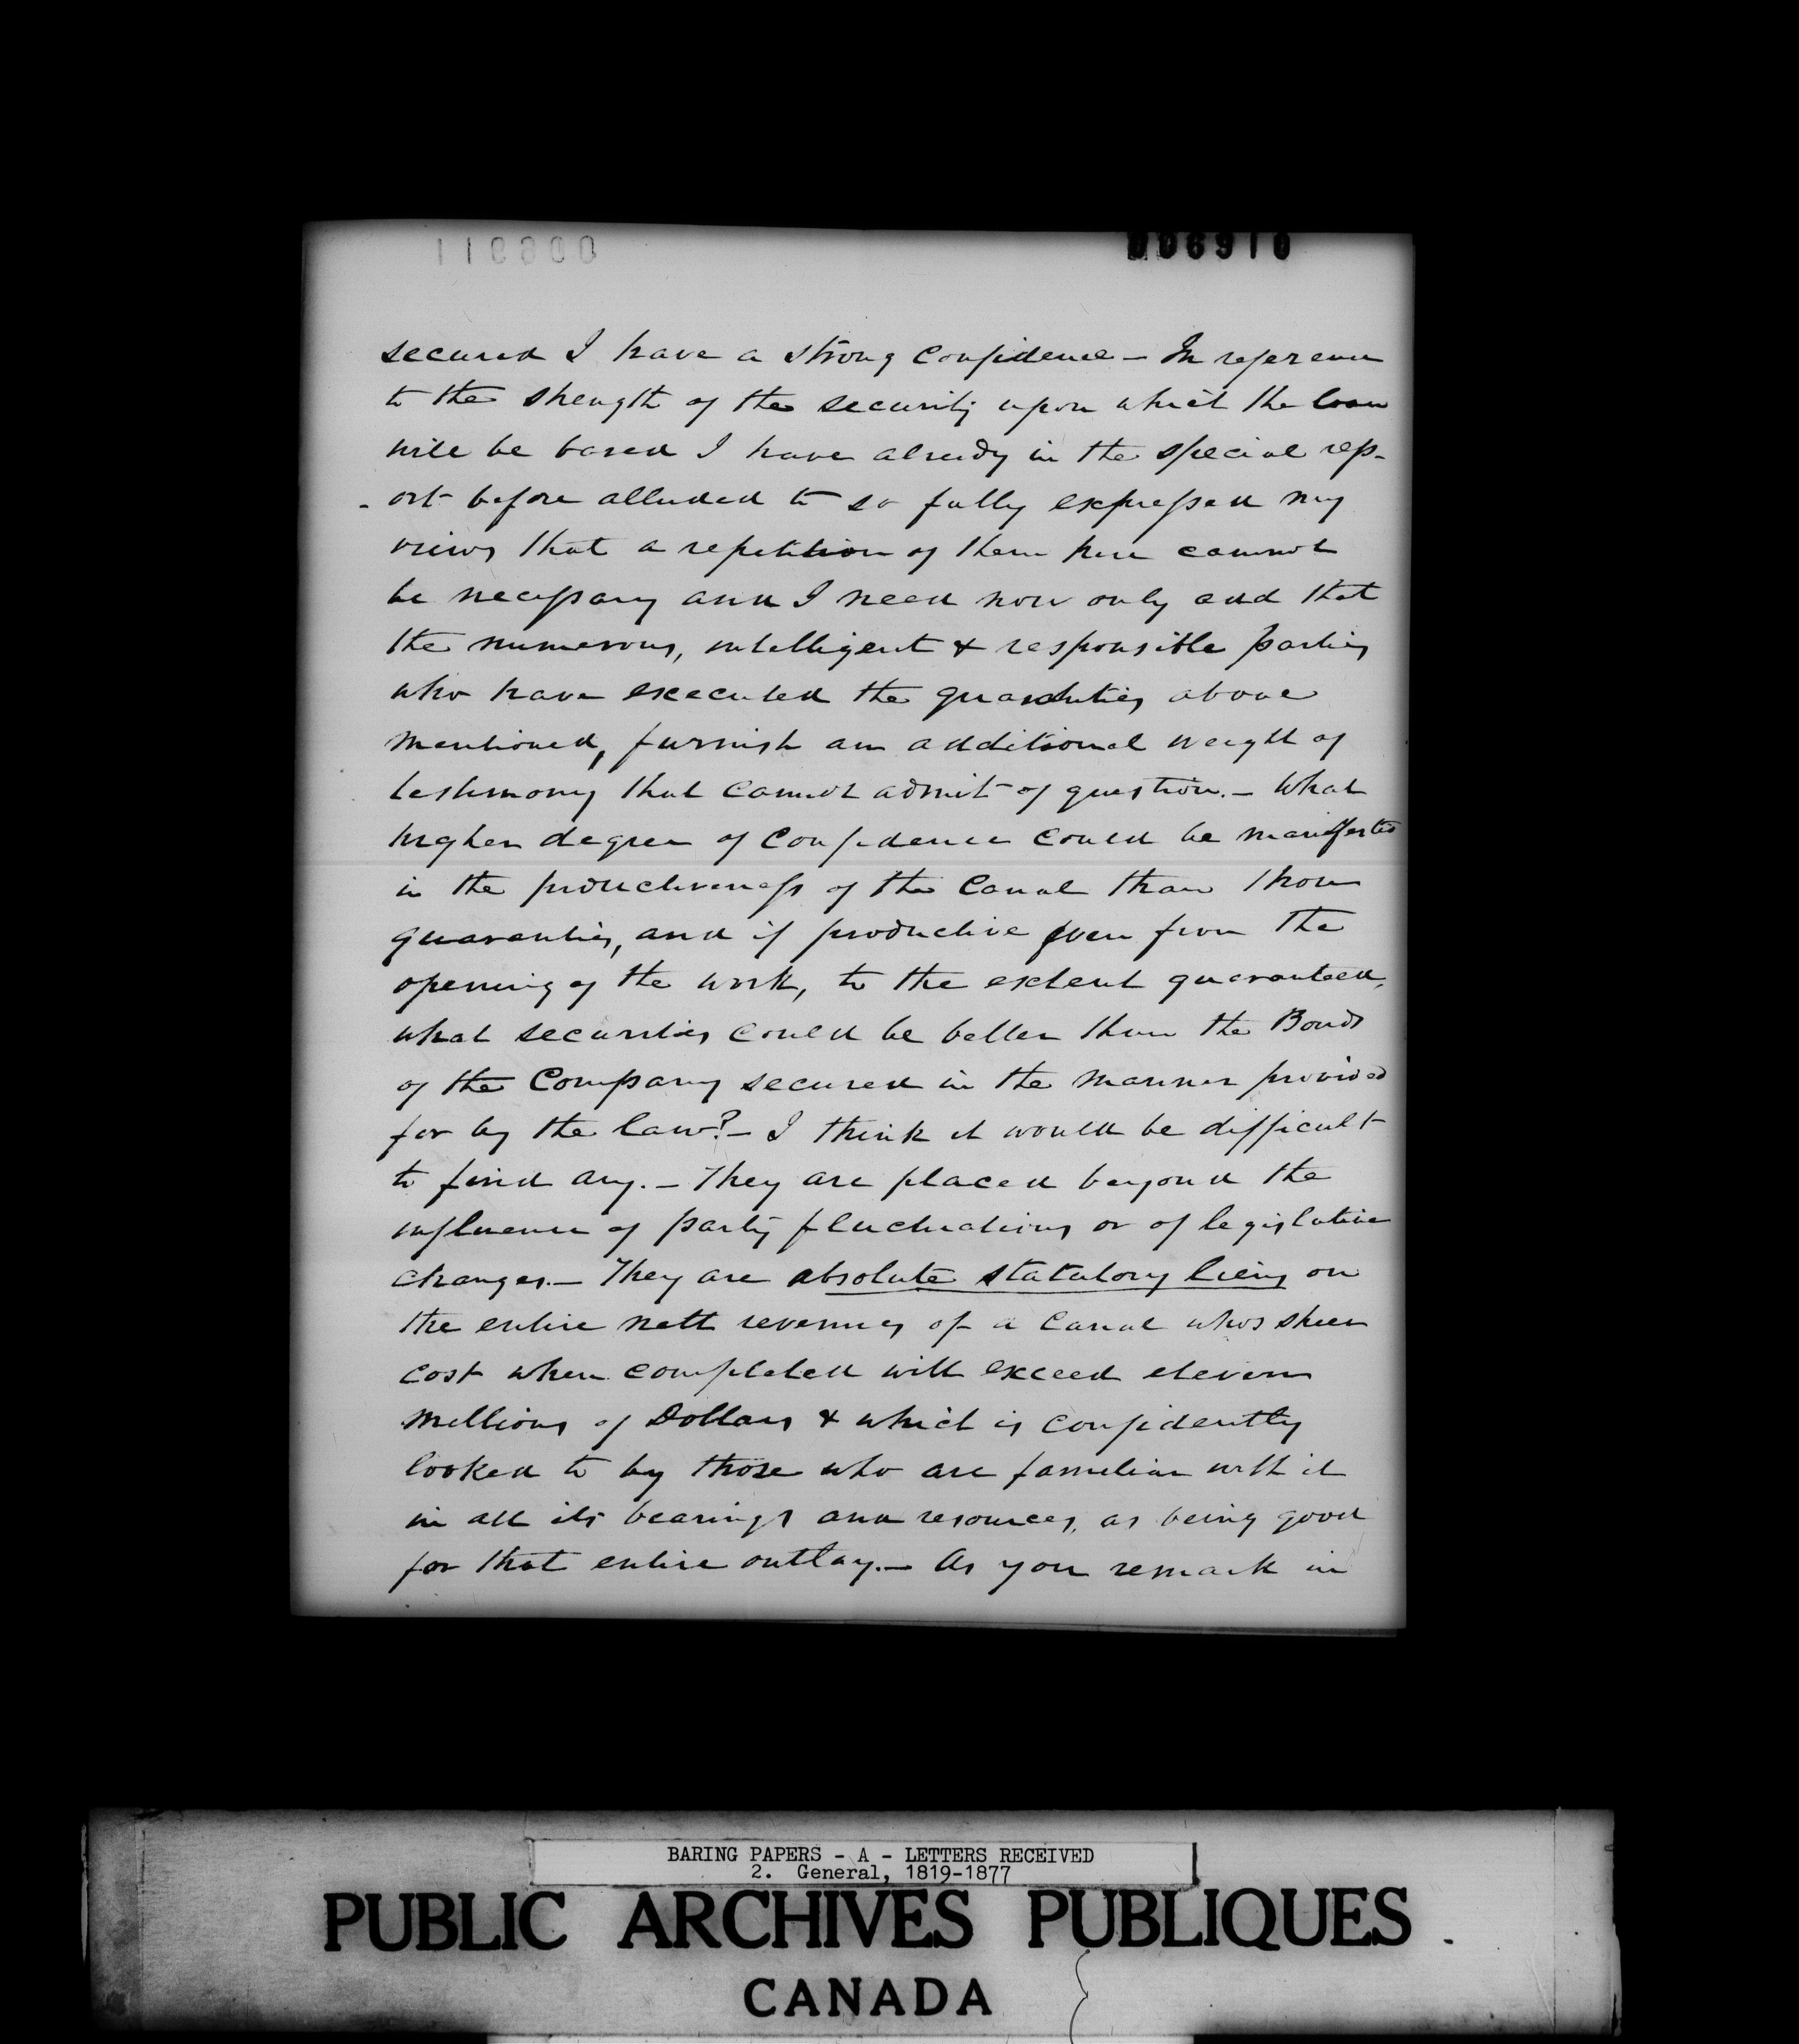 006910
secured I have a strong confidence – In reference
to the strength of the security upon which the loan
will be based I have already in the special rep-
- ort before alluded to so fully expressed my
views that a repetition of them here cannot
be necessary and I need now only add that
the numerous, intelligent & responsible parties
who have executed the guaranties above
mentioned, furnish an additional weight of
testimony that cannot admit of question. – What
higher degree of confidence could be manifested
in the productiveness of the Canal than those
guaranties, and if productive even from the
opening of the work, to the extent guaranteed,
what securities could be better than the Bonds
of the Company secured in the manner provided
for by the law? – I think it would be difficult
to find any. – They are placed beyond the
influence of party fluctuations or of legislative
changes. – They are absolute statutory liens on
the entire nett revenues of a Canal whos sheer
cost when completed will exceed eleven
millions of Dollars & which is confidently
looked to by those who are familiar with it
in all its bearings and resources, as being good
for that entire outlay. – As you remark in
BARING PAPERS - A - LETTERS RECEIVED
2. General, 1819-1877
PUBLIC ARCHIVES PUBLIQUES
CANADA